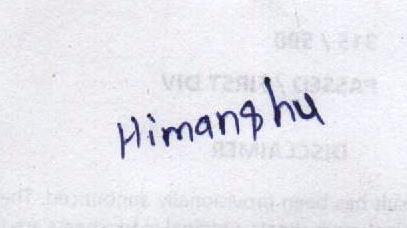 315 / 500
PASSED / FIRST DIV
Himanshu
DISCLAIMER
has been provisionally announced. The